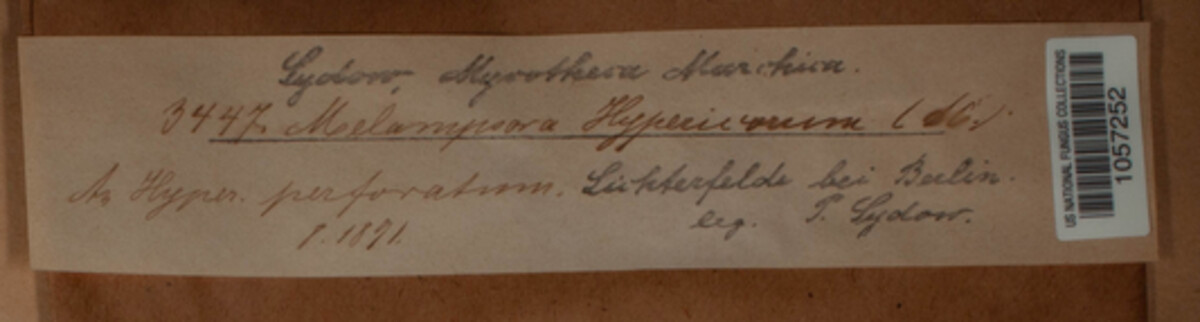 Sydow, Mycotheca Marchica.
3447. Melampsora Hypericorum (DC.).
An Hyper. perforatum. Lichterfelde bei Berlin.
8. 1891. leg. P. Sydow.
US NATIONAL FUNGUS COLLECTIONS
1057252